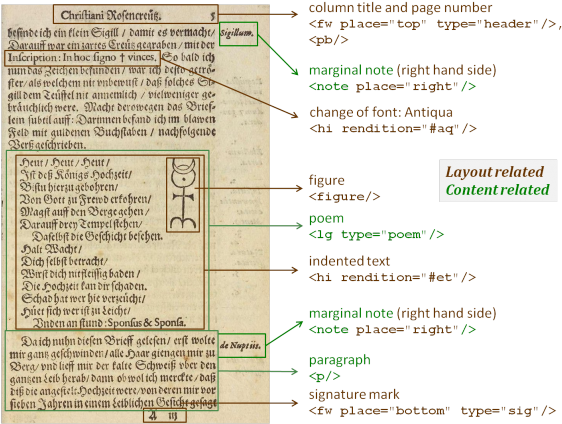 Chriſtiani Roſencreütz. 5
befinde ich ein klein Sigill / damit es vermacht/
Darauff war ein zartes Creütz gegraben / mit der
Inſcription: In hoc ſigno † vinces. So bald ich
nun das Zeichen befunden / war ich deſto getrö-
ſter/ als welchem nit unbewuſt/ daß ſolches Si-
gill dem Teüffel nit annemlich / vielweniger ge-
bräuchlich were. Macht derowegen das Brief-
lein ſubtil auff: Darinnen befand ich im blawen
Feld mit guldenen Buchſtaben / nachfolgende
Verß geſchrieben.
Sigillum.
Heut / Heut / Heut /
Iſt deß Königs Hochzeit/
Biſtu hierzu gebohren/
Von Gott zu Frewd erkohren/
Magſt auff den Berge gehen/
Darauff drey Tempel ſtehen/
Daſelbſt die Geſchicht beſehen.
Halt Wacht/
Dich ſelbſt betracht/
Wirſt dich nit fleiſſig baden/
Die Hochzeit kan dir ſchaden.
Schad hat wer hie verzeücht/
Hüet ſich wer iſt zu Leicht/
Unden an ſtund: Sponſus & Sponſa.
Da ich nuhn dieſen Brieff geleſen/ erſt wolte
mir gantz geſchwinden/ alle Haar giengen mir zu
Berg/ und lieff mir der kalte Schweiß uber den
gantzen Leib herab/ dann ob wol ich merckte/ daß
diß die angeſtelt Hochzeit were/ von deren mir vor
ſieben Jahren in einem Leiblichen Geſicht geſagt
de Nuptiis.
A iij
column title and page number
<fw place="top" type="header"/>,
<pb/>
marginal note (right hand side)
<note place="right"/>
change of font: Antiqua
<hi rendition="#aq"/>
figure
<figure/>
poem
<lg type="poem"/>
indented text
<hi rendition="#et"/>
marginal note (right hand side)
<note place="right"/>
paragraph
<p/>
signature mark
<fw place="bottom" type="sig"/>
Layout related
Content related